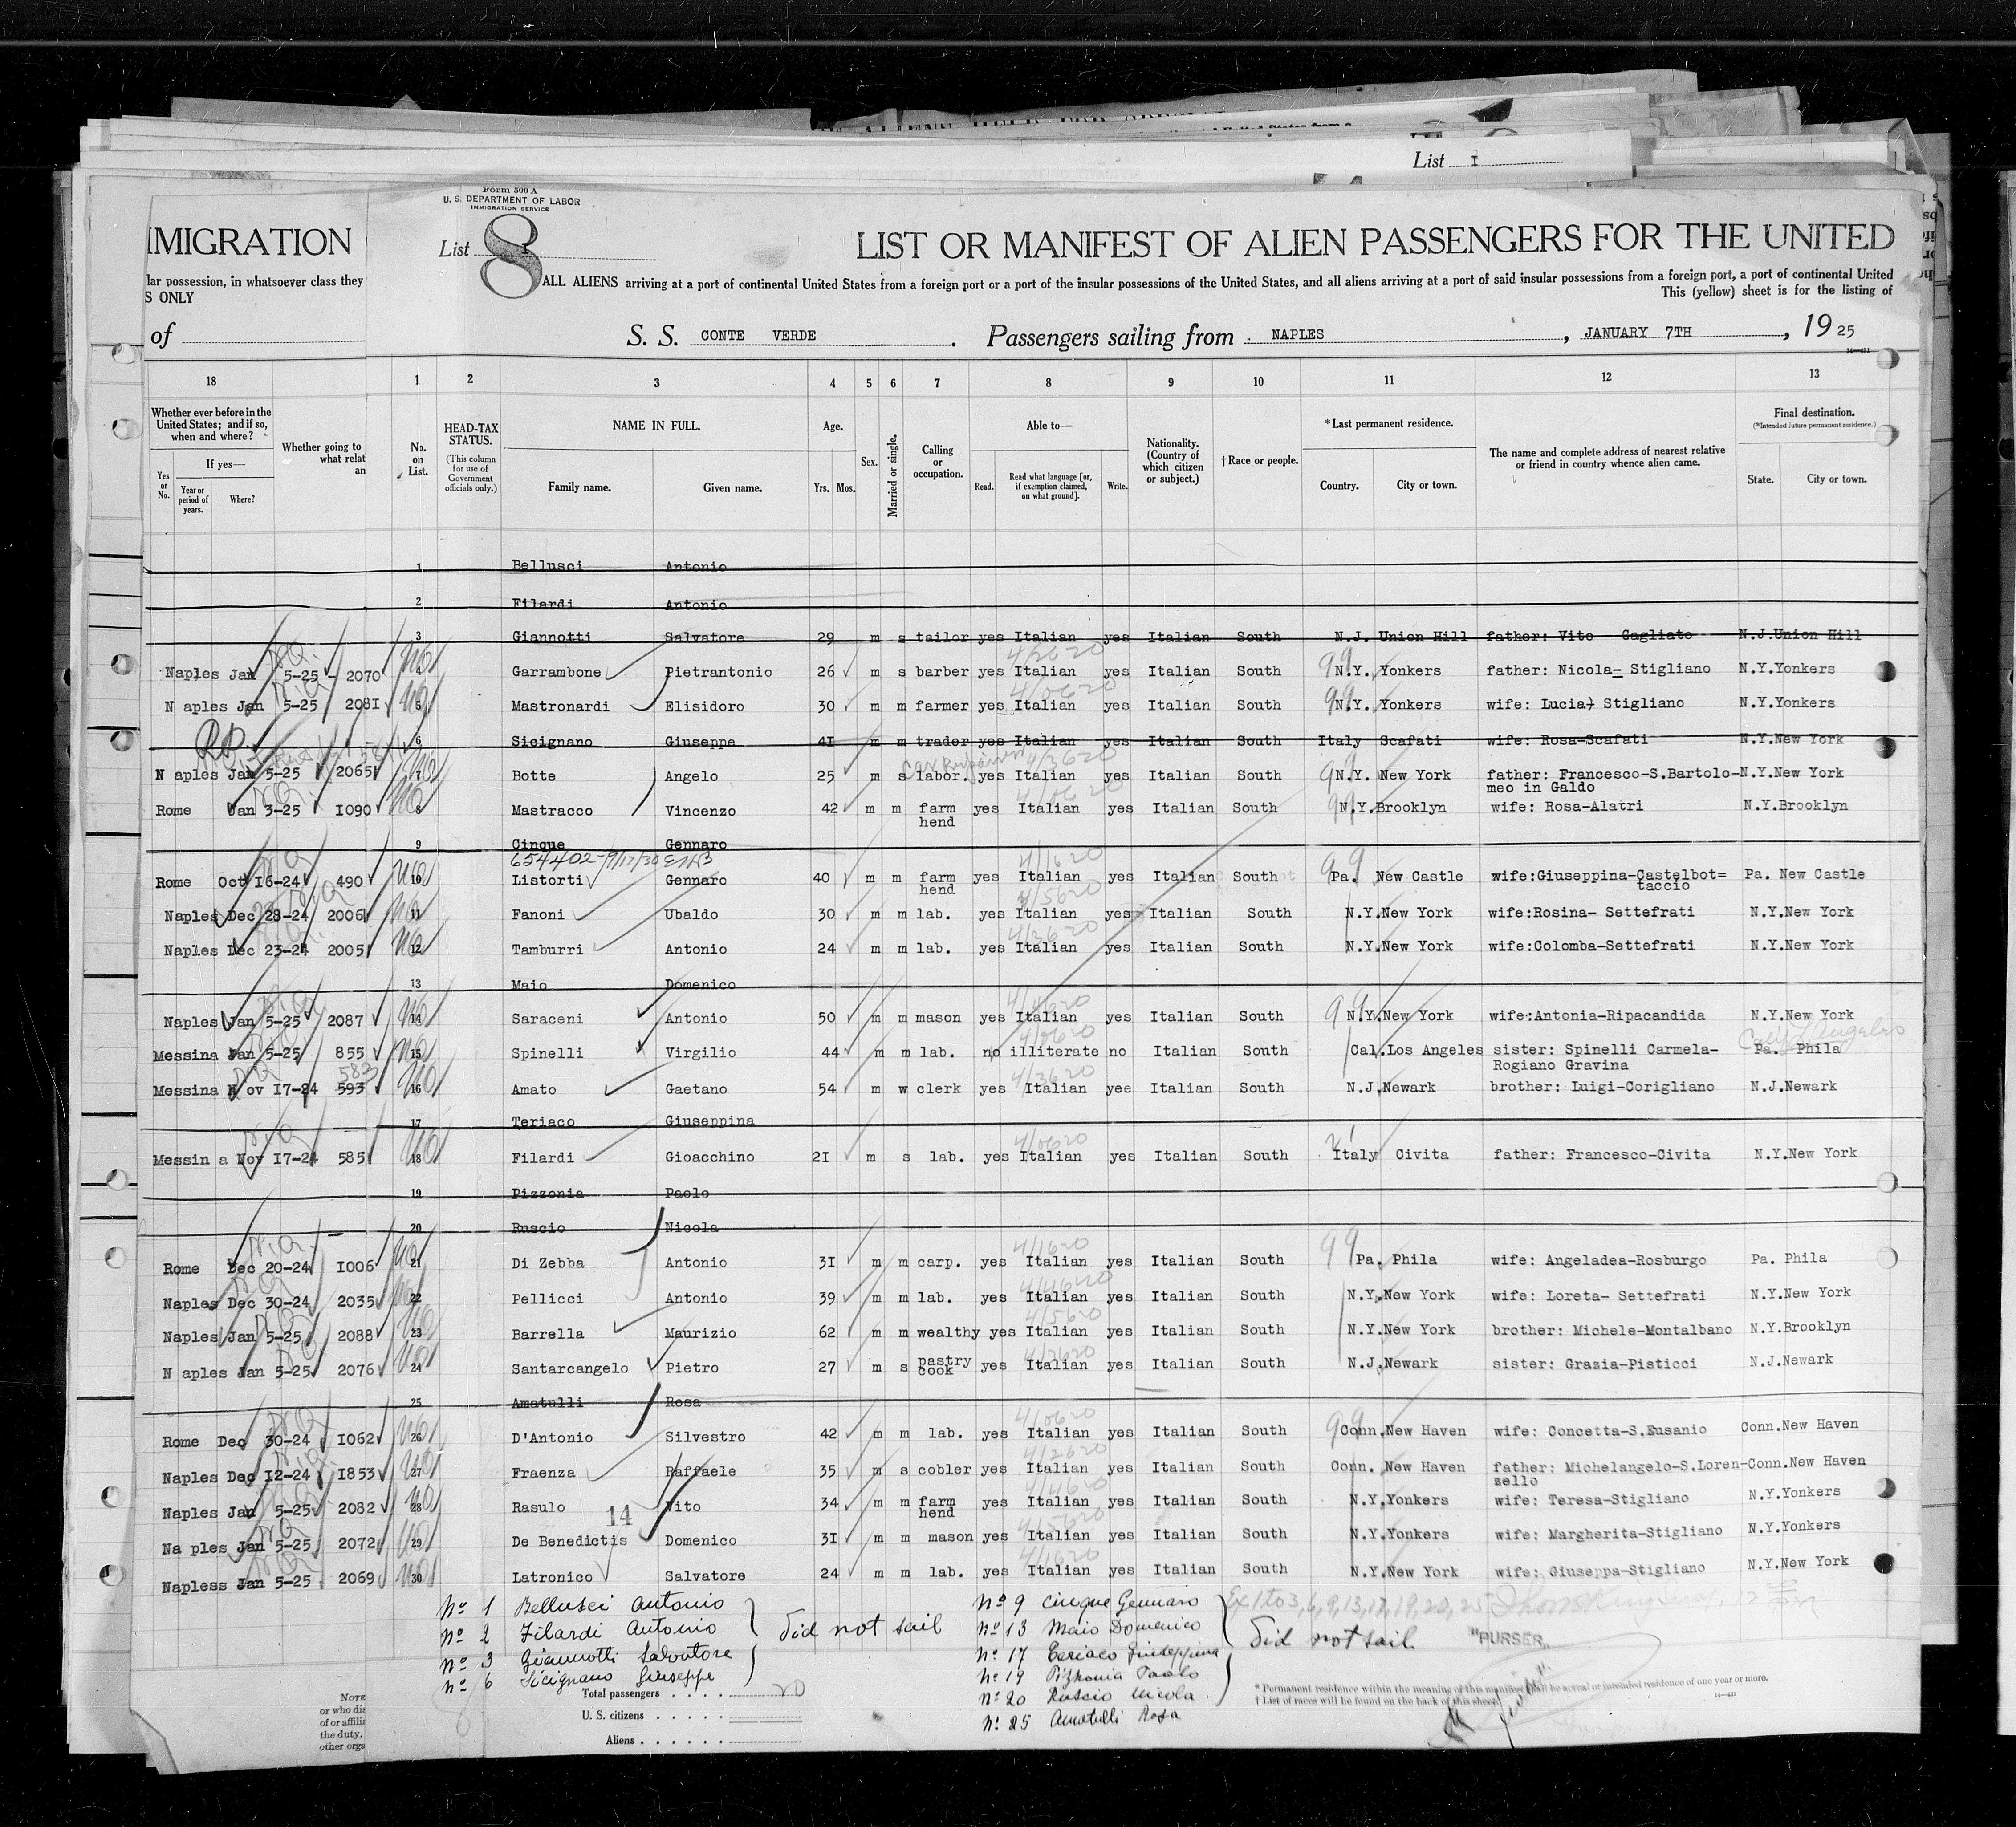 List I
Form 500 A
U. S. DEPARTMENT OF LABOR
IMMIGRATION SERVICE
IMIGRATION
List 8
LIST OR MANIFEST OF ALIEN PASSENGERS FOR THE UNITED
lar possession, in whatsoever class they
S ONLY
ALL ALIENS arriving at a port of continental United States from a foreign port or a port of the insular possessions of the United States, and all aliens arriving at a port of said insular possessions from a foreign port, a port of continental United
This (yellow) sheet is for the listing of
of
S. S. CONTE VERDE . Passengers sailing from NAPLES , JANUARY 7TH , 19 25
18 1 2 3 4 5 6 7 8 9 10 11 12 13
Whether ever before in the United States; and if so, when and where?
If yes—
Yes or No.
Year or period of years.
Where?
Whether going to
what relat
an
No. on List.
HEAD-TAX STATUS.
(This column for use of Government officials only.)
NAME IN FULL.
Family name. Given name.
Age.
Yrs. Mos.
Sex.
Married or single.
Calling or occupation.
Able to—
Read. Read what language [or, if exemption claimed, on what ground]. Write.
Nationality. (Country of which citizen or subject.)
†Race or people.
*Last permanent residence.
Country. City or town.
The name and complete address of nearest relative or friend in country whence alien came.
Final destination.
(*Intended future permanent residence.)
State. City or town.
1 Bellusci Antonio
2 Filardi Antonio
3 Giannotti Salvatore 29 m s tailor yes Italian yes Italian South N.J. Union Hill father: Vito - Cagliato N.J.Union Hill
Naples Jan 5-25 - 2070 Garrambone Pietrantonio 26 m s barber yes Italian yes Italian South N.Y. Yonkers father: Nicola- Stigliano N.Y.Yonkers
N aples Jan 5-25 208I 5 Mastronardi Elisidoro 30 m m farmer yes Italian yes Italian South N.Y. Yonkers wife: Lucia) Stigliano N.Y.Yonkers
6 Sicignano Giuseppe 4I m m trader yes Italian yes Italian South Italy Scafati wife: Rosa-Scafati N.Y.New York
N aples Jan 5-25 2065 7 Botte Angelo 25 m s labor. yes Italian yes Italian South N.Y. New York father: Francesco-S.Bartolo- N.Y.New York
meo in Galdo
Rome Jan 3-25 I090 8 Mastracco Vincenzo 42 m m farm yes Italian yes Italian South N.Y.Brooklyn wife: Rosa-Alatri N.Y.Brooklyn
hend
9 Cinque Gennaro
654402-9/17/30
Rome Oct I6-24 490 10 Listorti Gennaro 40 m m farm yes Italian yes Italian South Pa. New Castle wife:Giuseppina-Castelbot= Pa. New Castle
hend taccio
Naples Dec 28-24 2006 11 Fanoni Ubaldo 30 m m lab. yes Italian yes Italian South N.Y.New York wife:Rosina- Settefrati N.Y.New York
Naples Dec 23-24 2005 12 Tamburri Antonio 24 m m lab. yes Italian yes Italian South N.Y.New York wife:Colomba-Settefrati N.Y.New York
13 Maio Domenico
Naples Jan 5-25 2087 14 Saraceni Antonio 50 m m mason yes Italian yes Italian South N.Y.New York wife:Antonia-Ripacandida N.Y.New York
Messina Jan 5-25 855 15 Spinelli Virgilio 44 m m lab. no illiterate no Italian South Cal.Los Angeles sister: Spinelli Carmela- Pa. Phila
Rogiano Gravina
583
Messina N ov I7-24 593 16 Amato Gaetano 54 m w clerk yes Italian yee Italian South N.J.Newark brother: Luigi-Corigliano N.J.Newark
17 Teriaco Giuseppina
Messin a Nov I7-24 585 18 Filardi Gioacchino 2I m s lab. yes Italian yes Italian South Italy Civita father: Francesco-Civita N.Y.New York
19 Pizzonia Paolo
20 Ruscio Nicola
Rome Dec 20-24 I006 21 Di Zebba Antonio 3I m m carp. yes Italian yes Italian South Pa. Phila wife: Angeladea-Rosburgo Pa. Phila
Naples Dec 30-24 2035 22 Pellicci Antonio 39 m m lab. yes Italian yes Italian South N.Y.New York wife: Loreta- Settefrati N.Y.New York
Naples Jan 5-25 2088 23 Barrella Maurizio 62 m m wealthy yes Italian yes Italian South N.Y.New York brother: Michele-Montalbano N.Y.Brooklyn
N aples Jan 5-25 2076 24 Santarcangelo Pietro 27 m s pastry cook yes Italian yes Italian South N.J.Newark sister: Grazia-Pisticci N.J.Newark
25 Amatulli Rosa
Rome Dec 30-24 I062 26 D'Antonio Silvestro 42 m m lab. yes Italian yes Italian South Conn.New Haven wife: Concetta-S.Eusanio Conn.New Haven
Naples Dec I2-24 I853 27 Fraenza Raffaele 35 m s cobler yes Italian yes Italian South Conn. New Haven father: Michelangelo-S.Loren- Conn.New Haven
zello
Naples Jan 5-25 2082 28 Rasulo Vito 34 m m farm yes Italian yes Italian South N.Y.Yonkers wife: Teresa-Stigliano N.Y.Yonkers
14 hend
Na ples Jan 5-25 2072 29 De Benedictis Domenico 3I m m mason yes Italian yes Italian South N.Y.Yonkers wife: Margherita-Stigliano N.Y.Yonkers
Napless Jan 5-25 2069 30 Latronico Salvatore 24 m m lab. yes Italian yes Italian South N.Y.New York wife: Giuseppa-Stigliano N.Y.New York
No 1 Bellusci Antonio
No 2 Filardi Antonio
No 3 Giannotti Salvatore
No 6 Sicignano Giuseppe
did not sail
No 9 Cinque Gennaro
No 13 Maio Domenico
No 17 Teriaco Giuseppina
No 19 Pizzonia Paolo
No 20 Ruscio Nicola
No 25 Amatulli Rosa
did not sail
Ex 1 to 3, 6, 9, 13, 17, 19, 20, 25
"PURSER"
Total passengers . . . . 20
U. S. citizens . . . . .
Aliens . . . . . .
* Permanent residence within the meaning of this manifest shall be actual or intended residence of one year or more.
† List of races will be found on the back of this sheet.
NOTE
or who dis
of or affilia
the duty,
other orga